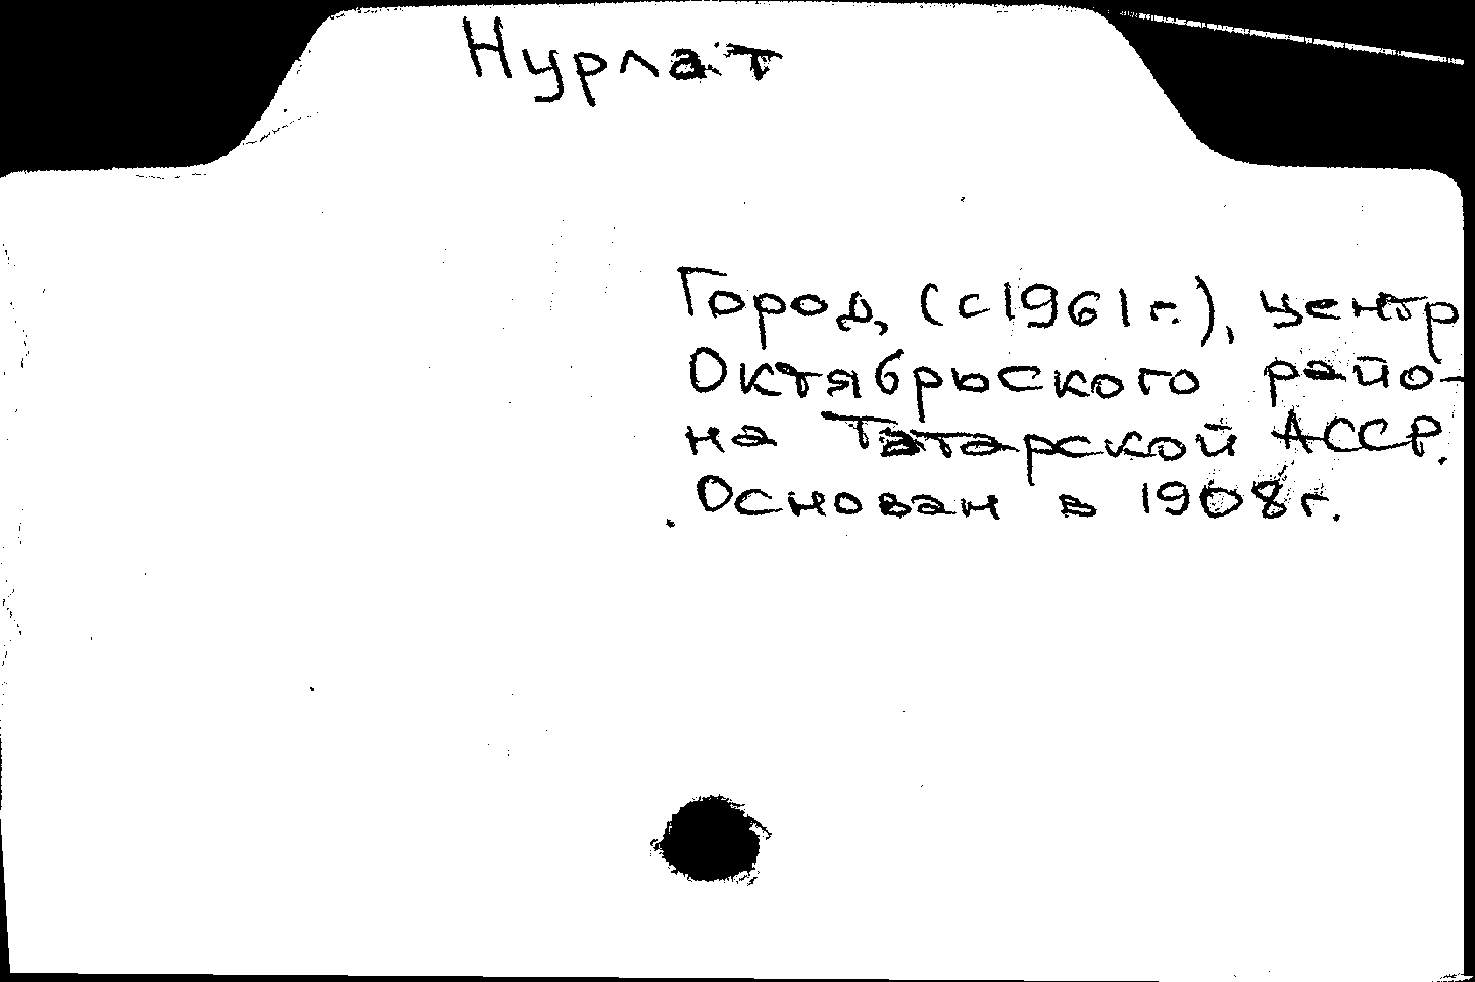 Нурлат
Город, (с 1961 г.), центр
Октябрьского райо-
на Татарской АССР.
Основан в 1908 г.